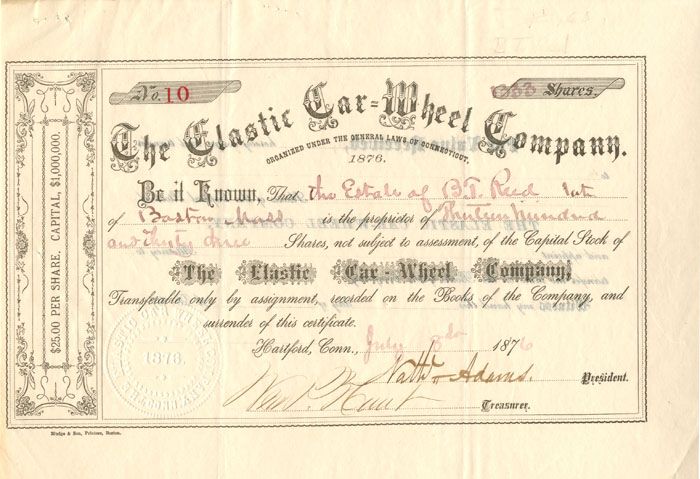 No. 10
1333 Shares.
The Elastic Car-Wheel Company.
ORGANIZED UNDER THE GENERAL LAWS OF CONNECTICUT,
1876.
Be it Known, That the Estate of B. T. Reed late
of Boston Mass is the proprietor of Thirteen hundred
and Thirty three Shares, not subject to assessment, of the Capital Stock of
The Elastic Car-Wheel Company,
Transferable only by assignment, recorded on the Books of the Company, and
surrender of this certificate.
Hartford, Conn., July 1876
Nathl Adams. President.
Treasurer.
$25.00 PER SHARE. CAPITAL, $1,000,000.
1876
Mudge & Son, Printers, Boston.